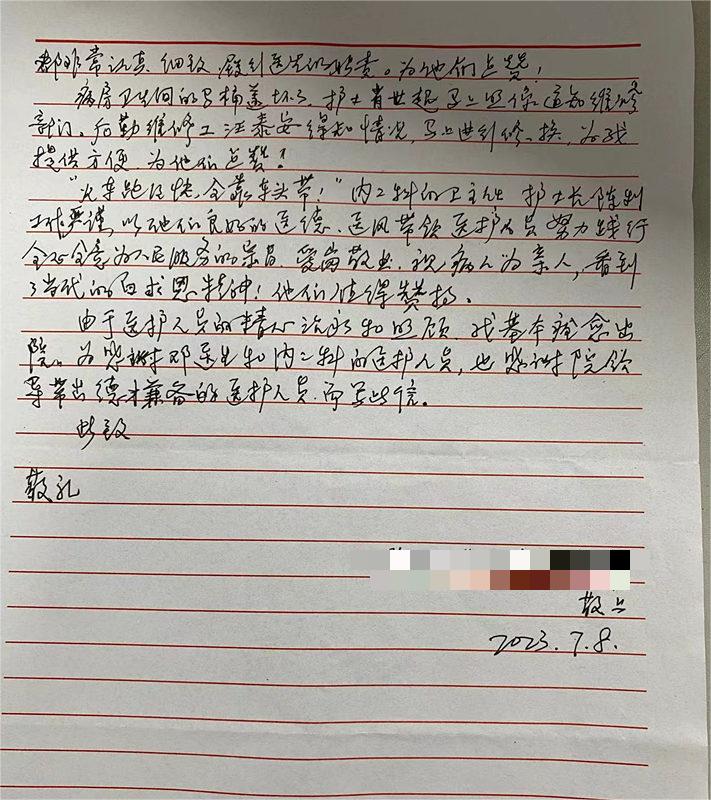 都非常认真细致,履到医生的职责。为他们点赞!
病房卫生间的马桶盖坏了,护士肖世超马上照像,通知维修
部门。后勤维修工汪泰安得知情况,马上进到修、换,为我
提供方便,为他们点赞!
“火车跑得快,全靠车头带!”内二科的卫主任、护士长陈利
工作严谨,以他们良好的医德、医风带领医护人员努力践行
全心全意为人民服务的宗旨,爱岗敬业,视病人为亲人,看到
了当代的白求恩精神!他们值得赞扬。
由于医护人员的精心治疗和照顾,我基本痊愈出
院。为感谢邓医生和内二科的医护人员,也感谢院领
导带出德才兼备的医护人员,而写此信。
此致
敬礼
敬上
2023.7.8.